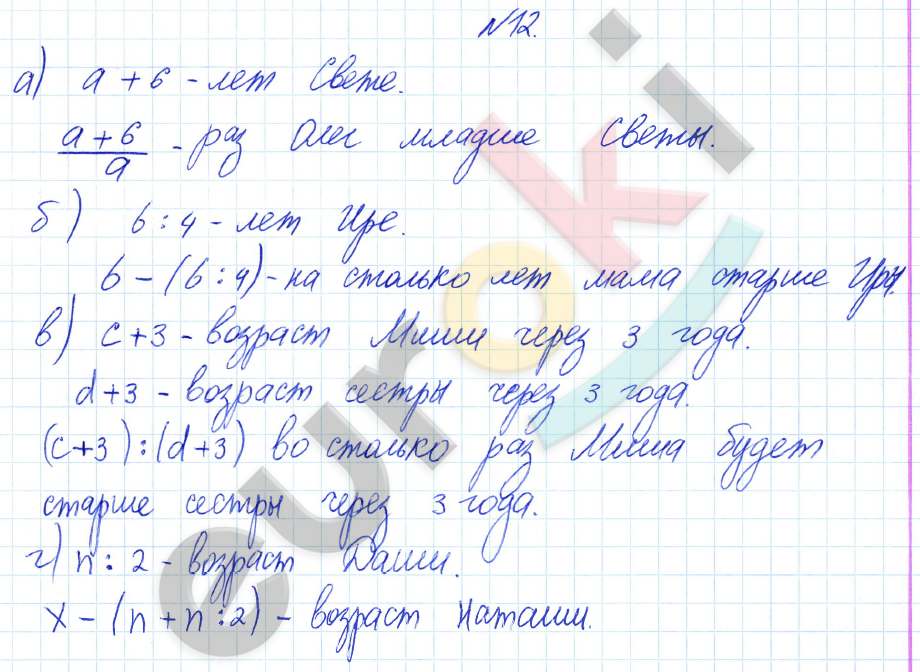 №12.
а) a + 6 - лет Свете.
a + 6
a - раз Олег младше Светы.
б) b : 4 - лет Ире.
b - (b : 4) - на столько лет мама старше Иры.
в) c + 3 - возраст Миши через 3 года.
d + 3 - возраст сестры через 3 года.
(c + 3) : (d + 3) во столько раз Миша будет
старше сестры через 3 года.
г) n : 2 - возраст Даши.
x - (n + n : 2) - возраст Наташи.
euroki